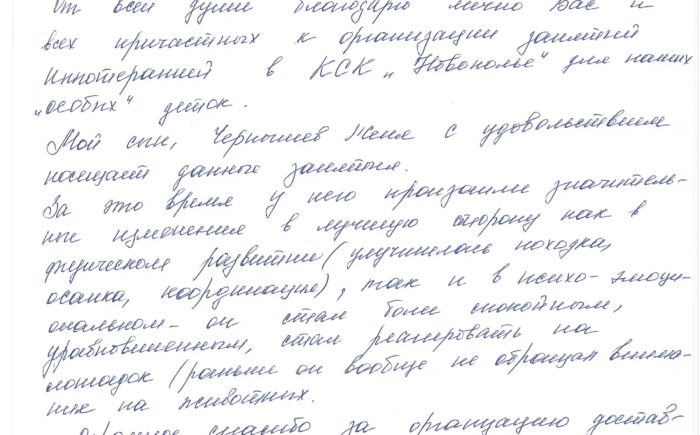 От всей души благодарю лично Вас и
всех причастных к организации занятий
иппотерапией в КСК „Новополье" для наших
„особых" деток.
Мой сын, Чернышев Женя с удовольствием
посещает данные занятия.
За это время у него произошли значитель-
ные изменения в лучшую сторону как в
физическом развитии (улучшилась походка,
осанка, координация), так и в психо-эмоци-
ональном - он стал более спокойным,
уравновешенным, стал реагировать на
лошадок (раньше он вообще не обращал внима-
ние на животных.
Огромное спасибо за организацию достав-